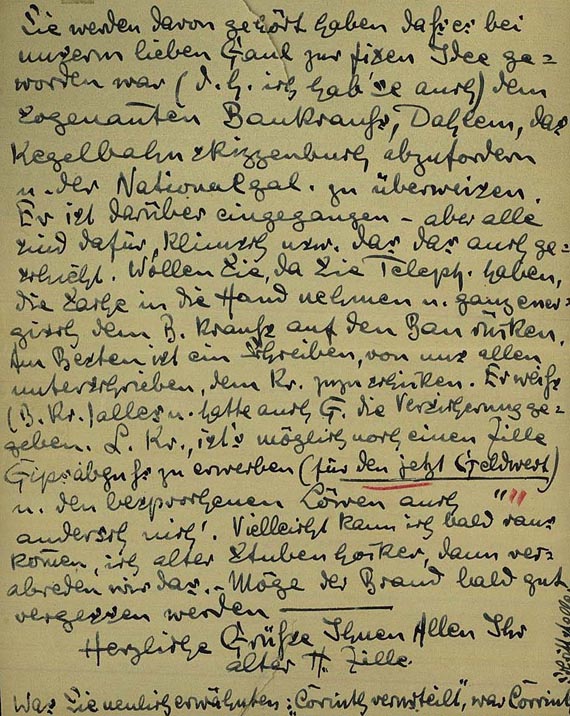 Sie werden davon gehört haben dass es bei
unserm lieben Gaul zur fixen Idee ge=
worden war (d.h. ich hab'se auch) dem
sogenanten Bankrauss, Dahlem, das
Kegelbahnskizzenbuch abzufordern
u. der Nationalgal. zu überweisen.
Er ist darüber eingegangen – aber alle
sind dafür, Klimsch usw. das das auch ge=
schicht. Wollen Sie, da Sie Teleph. haben,
die Sache in die Hand nehmen u. ganz ener=
gisch dem B. Krauss auf den Ban rücken.
Am Besten ist ein Schreiben, von uns allen
unterschrieben, dem Kr. zuzuschicken. Er weiss
(B. Kr.) alles u. hatte auch G. die Versicherung ge=
geben. L. Kr., ist's möglich noch einen Zille
Gipsabguss zu erwerben (für den jetzt Geldwert)
u. den besprochenen Löwen auch " "
anders nich'. Vielleicht kann ich bald raus
komen, ich alter Stubenhocker, dann ver=
abreden wir das. – Möge der Brand bald gut
vergessen werden
Herzliche Grüsse Ihnen Allen Ihr
alter H. Zille
Was Sie neulich erwähnten: "Corinth verurteilt", war Corinth